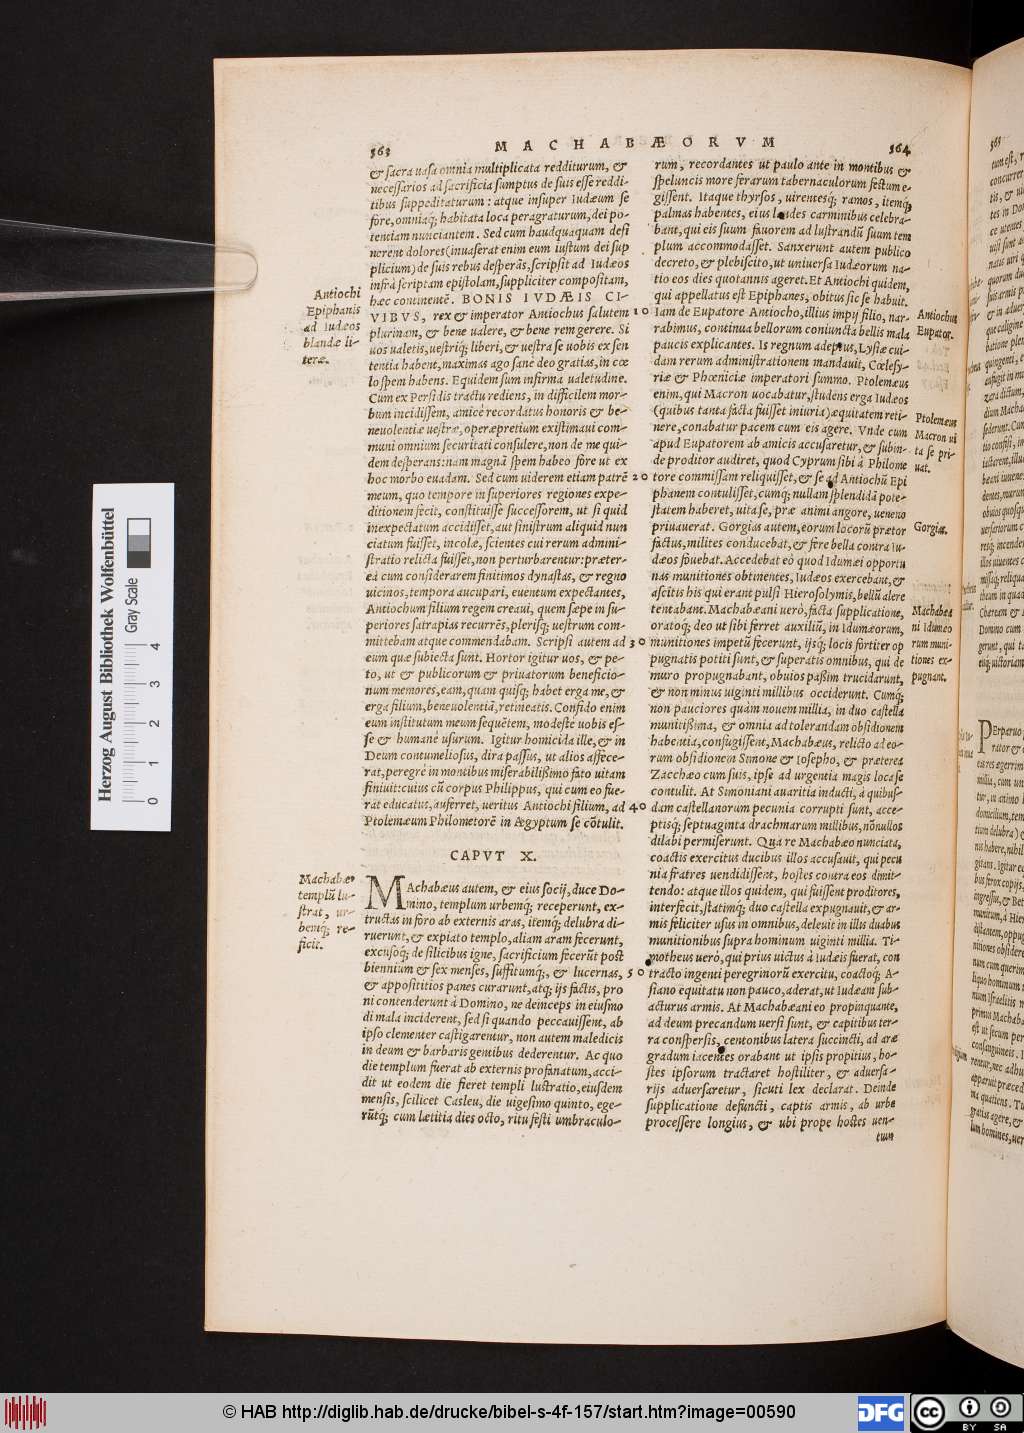 MACHABÆORVM
363
& sacra uasa omnia multiplicata redditurum, &
necessarios ad sacrificia sumptus de suis esse reddi-
tibus suppeditaturum: atque insuper Iudæum se
fore, omniaq́; habitata loca peragraturum, dei po-
tentiam nunciantem. Sed cum haudquaquam desi
nerent dolores (inuaserat enim eum iustum dei sup
plicium) de suis rebus desperãs, scripsit ad Iudæos
infrà scriptam epistolam, suppliciter compositam,
hæc continentẽ. BONIS IVDÆIS CI-
VIBVS, rex & imperator Antiochus salutem
plurimam, & bene ualere, & bene rem gerere. Si
uos ualetis, uestriq́; liberi, & uestra se uobis ex sen
tentia habent, maximas ago sanè deo gratias, in cœ
lo spem habens. Equidem sum infirma ualetudine.
Cum ex Persidis tractu rediens, in difficilem mor-
bum incidissem, amicè recordatus honoris & be-
neuolentiæ uestræ, operæpretium existimaui com-
muni omnium securitati consulere, non de me qui-
dem desperans: nam magnã spem habeo fore ut ex
hoc morbo euadam. Sed cum uiderem etiam patrẽ
meum, quo tempore in superiores regiones expe-
ditionem fecit, constituisse successorem, ut si quid
inexpectatum accidisset, aut sinistrum aliquid nun
ciatum fuisset, incolæ, scientes cui rerum admini-
stratio relicta fuisset, non perturbarentur: præter-
eà cum considerarem finitimos dynastas, & regno
uicinos, tempora aucupari, euentum expectantes,
Antiochum filium regem creaui, quem sæpe in su-
periores satrapias recurrẽs, plerisq́; uestrum com-
mittebam atque commendabam. Scripsi autem ad
eum quæ subiecta sunt. Hortor igitur uos, & pe-
to, ut & publicorum & priuatorum beneficio-
num memores, eam, quam quisq́; habet erga me, &
erga filium, beneuolentiã, retineatis. Confido enim
eum institutum meum sequẽtem, modestè uobis es-
se & humanè usurum. Igitur homicida ille, & in
Deum contumeliosus, dira passus, ut alios affece-
rat, peregrè in montibus miserabilissimo fato uitam
finiuit: cuius cũ corpus Philippus, qui cum eo fue-
rat educatus, auferret, ueritus Antiochi filium, ad
Ptolemæum Philometorẽ in Ægyptum se cõtulit.
CAPVT X.
MAchabæus autem, & eius socij, duce Do-
mino, templum urbemq́; receperunt, ex-
tructas in foro ab externis aras, itemq́; delubra di-
ruerunt, & expiato templo, aliam aram fecerunt,
excusoq́; de silicibus igne, sacrificium fecerũt post
biennium & sex menses, suffitumq́;, & lucernas,
& appositios panes curarunt, atq; ijs factis, pro
ni contenderunt à Domino, ne deinceps in eiusmo
di mala inciderent, sed si quando peccauissent, ab
ipso clementer castigarentur, non autem maledicis
in deum & barbaris gentibus dederentur. Ac quo
die templum fuerat ab externis profanatum, acci-
dit ut eodem die fieret templi lustratio, eiusdem
mensis, scilicet Casleu, die uigesimo quinto, ege-
rũtq́; cum lætitia dies octo, ritu festi umbraculo-
Antiochi
Epiphanis
ad Iudæos
blandæ li-
teræ.
Machabæ9
templũ lu-
strat, ur-
bemq́; re-
ficit.
10
20
30
40
50
364
rum, recordantes ut paulo ante in montibus &
speluncis more ferarum tabernaculorum festum e-
gissent. Itaque thyrsos, uirentesq́; ramos, itemq́;
palmas habentes, eius laudes carminibus celebra-
bant, qui eis suum fauorem ad lustrandũ suum tem
plum accommodasset. Sanxerunt autem publico
decreto, & plebiscito, ut uniuersa Iudæorum na-
tio eos dies quotannis ageret. Et Antiochi quidem,
qui appellatus est Epiphanes, obitus sic se habuit.
Iam de Eupatore Antiocho, illius impij filio, nar-
rabimus, continua bellorum coniuncta bellis mala
paucis explicantes. Is regnum adeptus, Lysiæ cui-
dam rerum administrationem mandauit, Cœlesy-
riæ & Phœniciæ imperatori summo. Ptolemæus
enim, qui Macron uocabatur, studens erga Iudæos
(quibus tanta facta fuisset iniuria) æquitatem reti-
nere, conabatur pacem cum eis agere. Vnde cum
apud Eupatorem ab amicis accusaretur, & subin-
de proditor audiret, quod Cyprum sibi à Philome
tore commissam reliquisset, & se ad Antiochũ Epi
phanem contulisset, cumq́; nullam splendidã pote-
statem haberet, uita se, præ animi angore, ueneno
priuauerat. Gorgias autem, eorum locorũ prætor
factus, milites conducebat, & fere bella contra Iu-
dæos fouebat. Accedebat eò quod Idumæi opportu
nas munitiones obtinentes, Iudæos exercebant, &
ascitis his qui erant pulsi Hierosolymis, bellũ alere
tentabant. Machabæani uerò, facta supplicatione,
oratoq́; deo ut sibi ferret auxiliũ, in Idumæorum,
munitiones impetũ fecerunt, ijsq́; locis fortiter op
pugnatis potiti sunt, & superatis omnibus, qui de
muro propugnabant, obuios passim trucidarunt,
& non minus uiginti millibus occiderunt. Cumq́;
non pauciores quàm nouem millia, in duo castella
munitissima, & omnia ad tolerandam obsidionem
habentia, confugissent, Machabæus, relicto ad eo-
rum obsidionem Simone & Iosepho, & præterea
Zacchæo cum suis, ipse ad urgentia magis loca se
contulit. At Simoniani auaritia inducti, à quibus-
dam castellanorum pecunia corrupti sunt, acce-
ptisq́; septuaginta drachmarum millibus, nõnullos
dilabi permiserunt. Qua re Machabæo nunciata,
coactis exercitus ducibus illos accusauit, qui pecu
nia fratres uendidissent, hostes contra eos dimit-
tendo: atque illos quidem, qui fuissent proditores,
interfecit, statimq́; duo castella expugnauit, & ar-
mis feliciter usus in omnibus, deleuit in illis duabus
munitionibus supra hominum uiginti millia. Ti-
motheus uerò, qui prius uictus à Iudæis fuerat, con
tracto ingenti peregrinorũ exercitu, coactoq́; A-
siano equitatu non pauco, aderat, ut Iudæam sub-
acturus armis. At Machabæani eo propinquante,
ad deum precandum uersi sunt, & capitibus ter-
ra conspersis, centonibus latera succincti, ad aræ
gradum iacentes orabant ut ipsis propitius, ho-
stes ipsorum tractaret hostiliter, & aduersa-
rijs aduersaretur, sicuti lex declarat. Deinde
supplicatione defuncti, captis armis, ab urbe
processere longius, & ubi prope hostes uen-
tum
Antiochus
Eupator.
Ptolemæus
Macron ui
ta se pri-
uat.
Gorgias.
Machabæa
ni Idumæo
rum muni-
tiones ex-
pugnant.
365
Herzog August Bibliothek Wolfenbüttel
Gray Scale
0 1 2 3 4
© HAB http://diglib.hab.de/drucke/bibel-s-4f-157/start.htm?image=00590
DFG
cc
BY SA